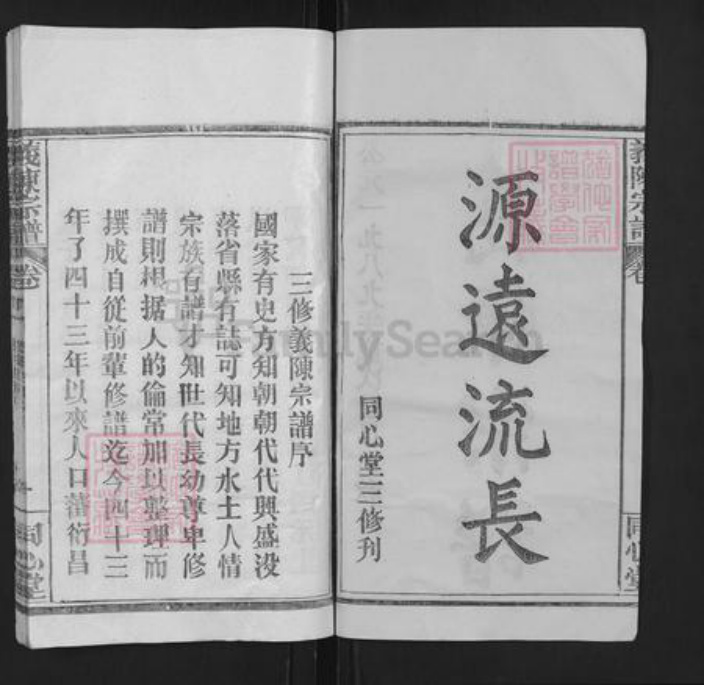 義陳宗譜
卷
同心堂
源遠流長
同心堂三修刊
三修義陳宗譜序
國家有史方知朝朝代代興盛没
落省縣有誌可知地方水土人情
宗族有譜才知世代長幼尊卑修
譜則根据人的倫常加以整理而
撰成自從前輩修譜迄今四十三
年了四十三年以來人口蕃衍昌
義陳宗譜
卷
同心堂
FamilySearch